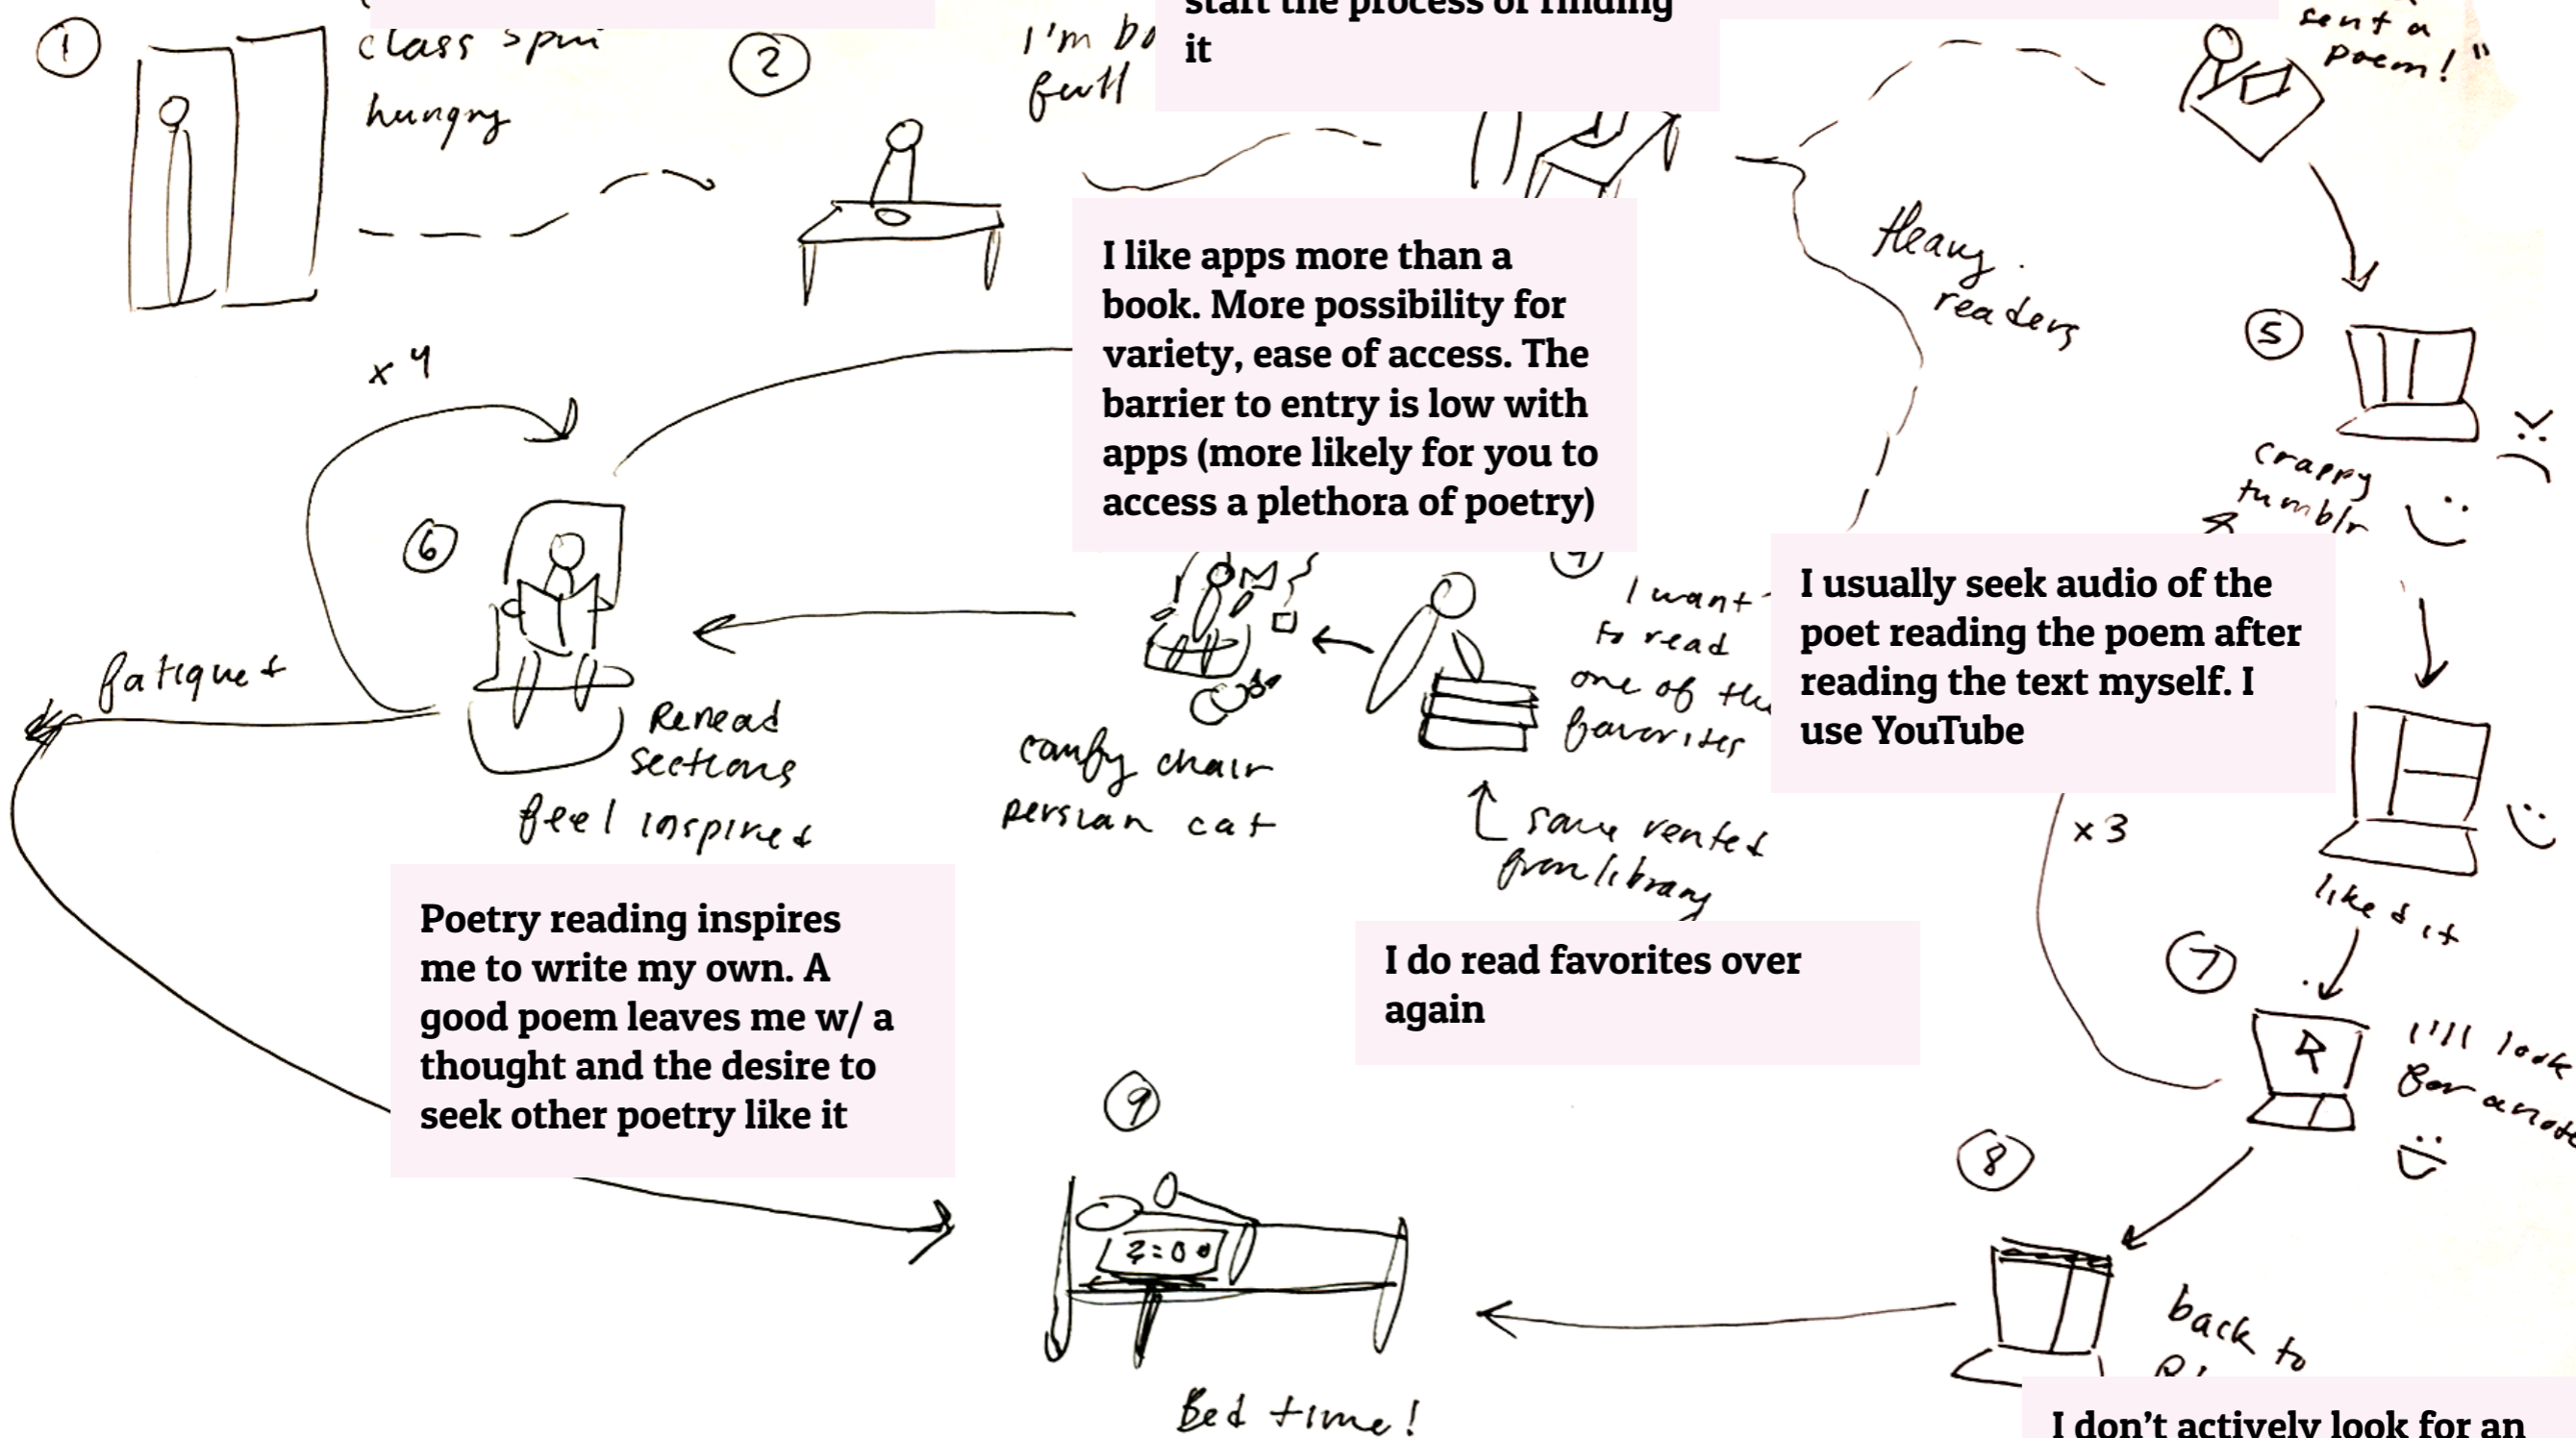 start the process of finding
it
1
class
hungry
2
I'm
full
sent a
poem!"
Heavy
readers
I like apps more than a
book. More possibility for
variety, ease of access. The
barrier to entry is low with
apps (more likely for you to
access a plethora of poetry)
5
crappy
tumblr
x 4
6
fatigued
Reread
sections
feel inspired
comfy chair
persian cat
4
I want
to read
one of
favorites
some rented
from library
I usually seek audio of the
poet reading the poem after
reading the text myself. I
use YouTube
x 3
liked it
7
I'll look
for
Poetry reading inspires
me to write my own. A
good poem leaves me w/ a
thought and the desire to
seek other poetry like it
I do read favorites over
again
8
back to
9
2:00
Bed time!
I don't actively look for an